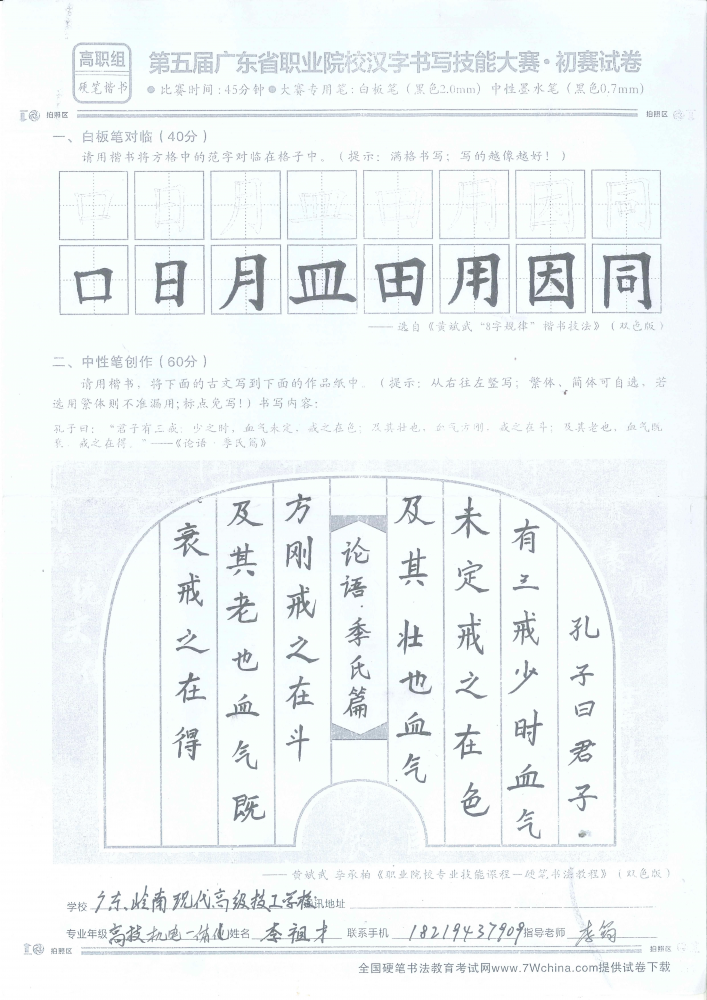 高职组
硬笔楷书
第五届广东省职业院校汉字书写技能大赛·初赛试卷
●比赛时间:45分钟●大赛专用笔:白板笔(黑色2.0mm)中性墨水笔(黑色0.7mm)
拍照区 拍照区
一、白板笔对临(40分)
请用楷书将方格中的范字对临在格子中。(提示:满格书写;写的越像越好!)
口日月皿田用因同
口日月皿田用因同
——选自《黄斌武“8字规律”楷书技法》(双色版)
二、中性笔创作(60分)
请用楷书,将下面的古文写到下面的作品纸中。(提示:从右往左竖写;繁体、简体可自选,若
选用繁体则不准漏用;标点免写!)书写内容:
孔子曰:“君子有三戒:少之时,血气未定,戒之在色;及其壮也,血气方刚,戒之在斗;及其老也,血气既
衰,戒之在得。”——《论语·季氏篇》
孔子曰君子
有三戒少时血气
未定戒之在色
及其壮也血气
论语·季氏篇
方刚戒之在斗
及其老也血气既
衰戒之在得
——黄斌武 华承柏《职业院校专业技能课程—硬笔书法教程》(双色版)
学校 广东岭南现代高级技工学校 讯地址
专业年级 高技机电一体化 姓名 李祖才 联系手机 18219437909 指导老师 李筠
拍照区 拍照区
全国硬笔书法教育考试网www.7Wchina.com提供试卷下载